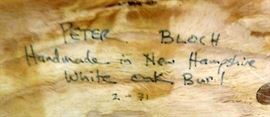 PETER BLOCH
Handmade in New Hampshire
White oak Burl
2-31